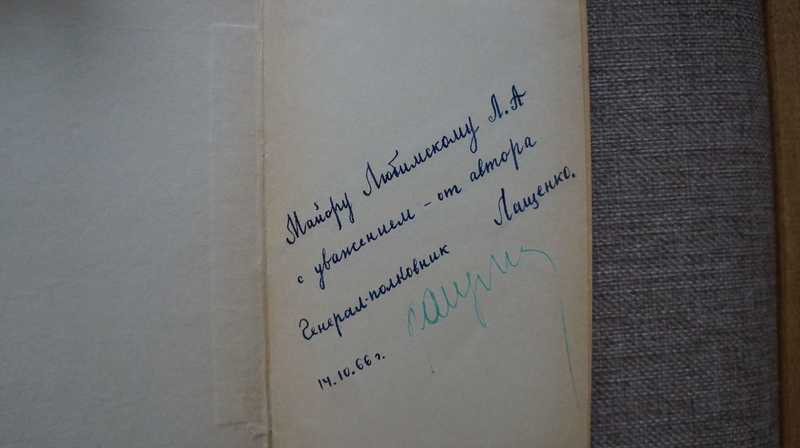 Майору Любимскому Л.А
с уважением – от автора
Генерал-полковник Лащенко.
14.10.66 г.